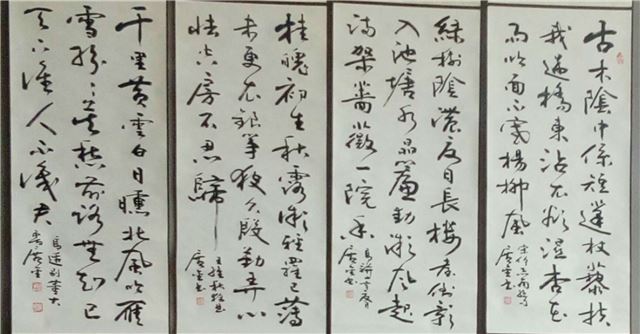 古木陰中係短篷杖藜扶
我過橋東沾衣欲濕杏花
雨吹面不寒楊柳風
宋僧志南詩
綠樹陰濃夏日長樓臺倒影
入池塘水晶簾動微風起
滿架薔薇一院香
高駢
桂魄初生秋露微輕羅已薄
未更衣銀箏夜久殷勤弄心
怯空房不忍歸
王維秋夜曲
千里黃雲白日曛北風吹雁
雪紛〻莫愁前路無知己
天下誰人不識君
高適別董大